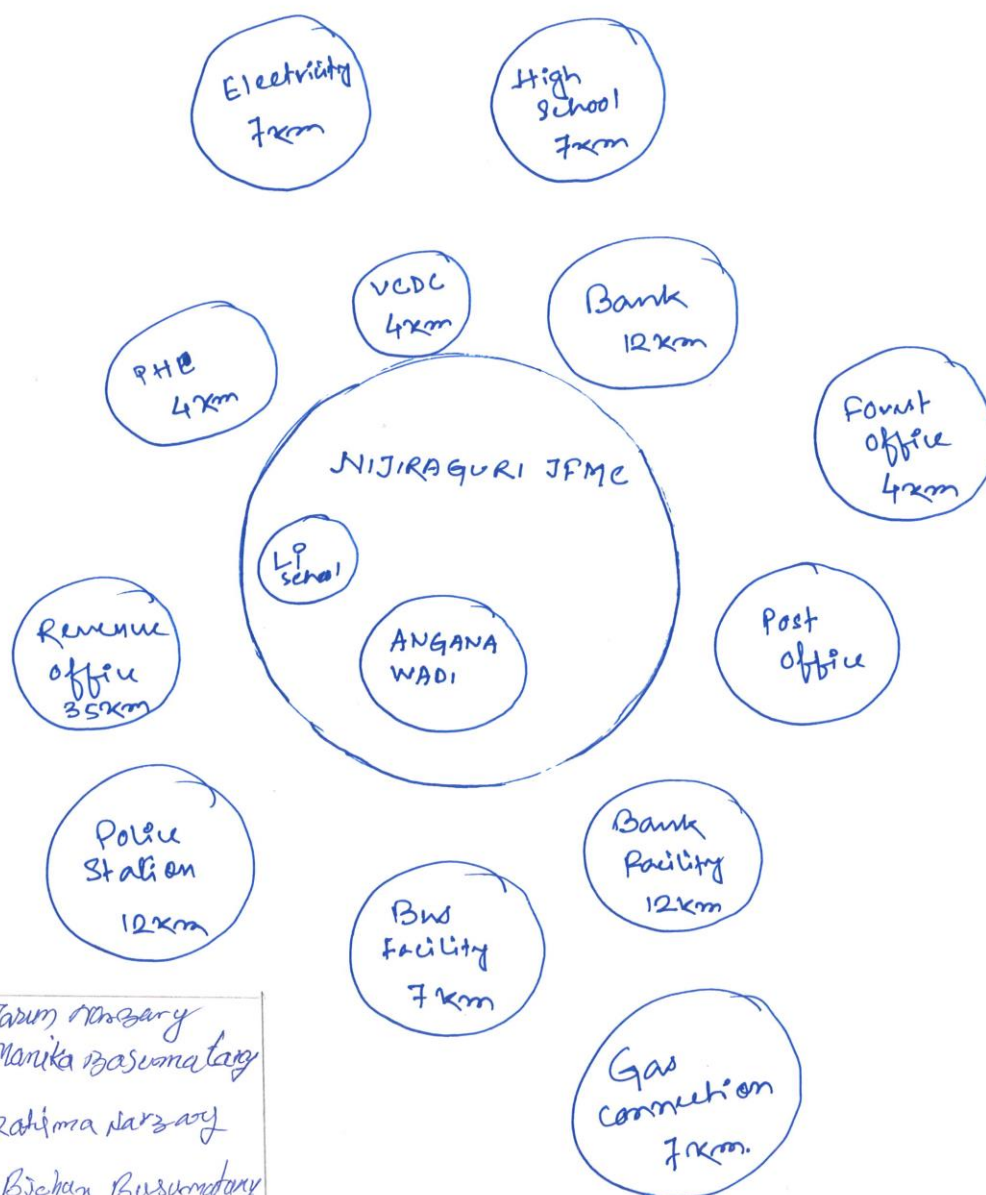 Electricity
7km
High
School
7km
VCDC
4km
Bank
12km
PHE
4km
Forest
office
4km
NIJIRAGURI JFMC
LP
School
ANGANA
WADI
Post
office
Revenue
office
35km
Police
Station
12km
Bank
Facility
12km
Bus
Facility
7km
Gas
connection
7km.
Narzary
Manika Basumatary
Narzary
Basumatary